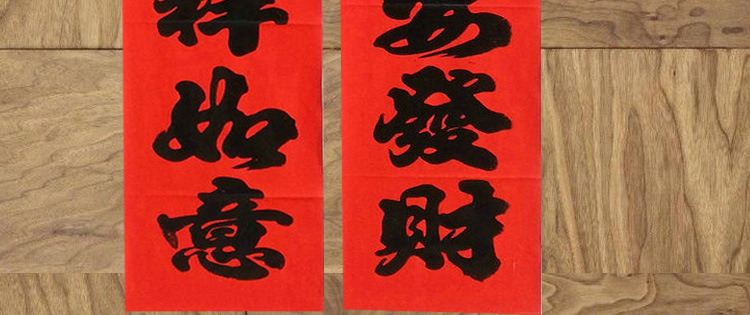 發財
祥如意